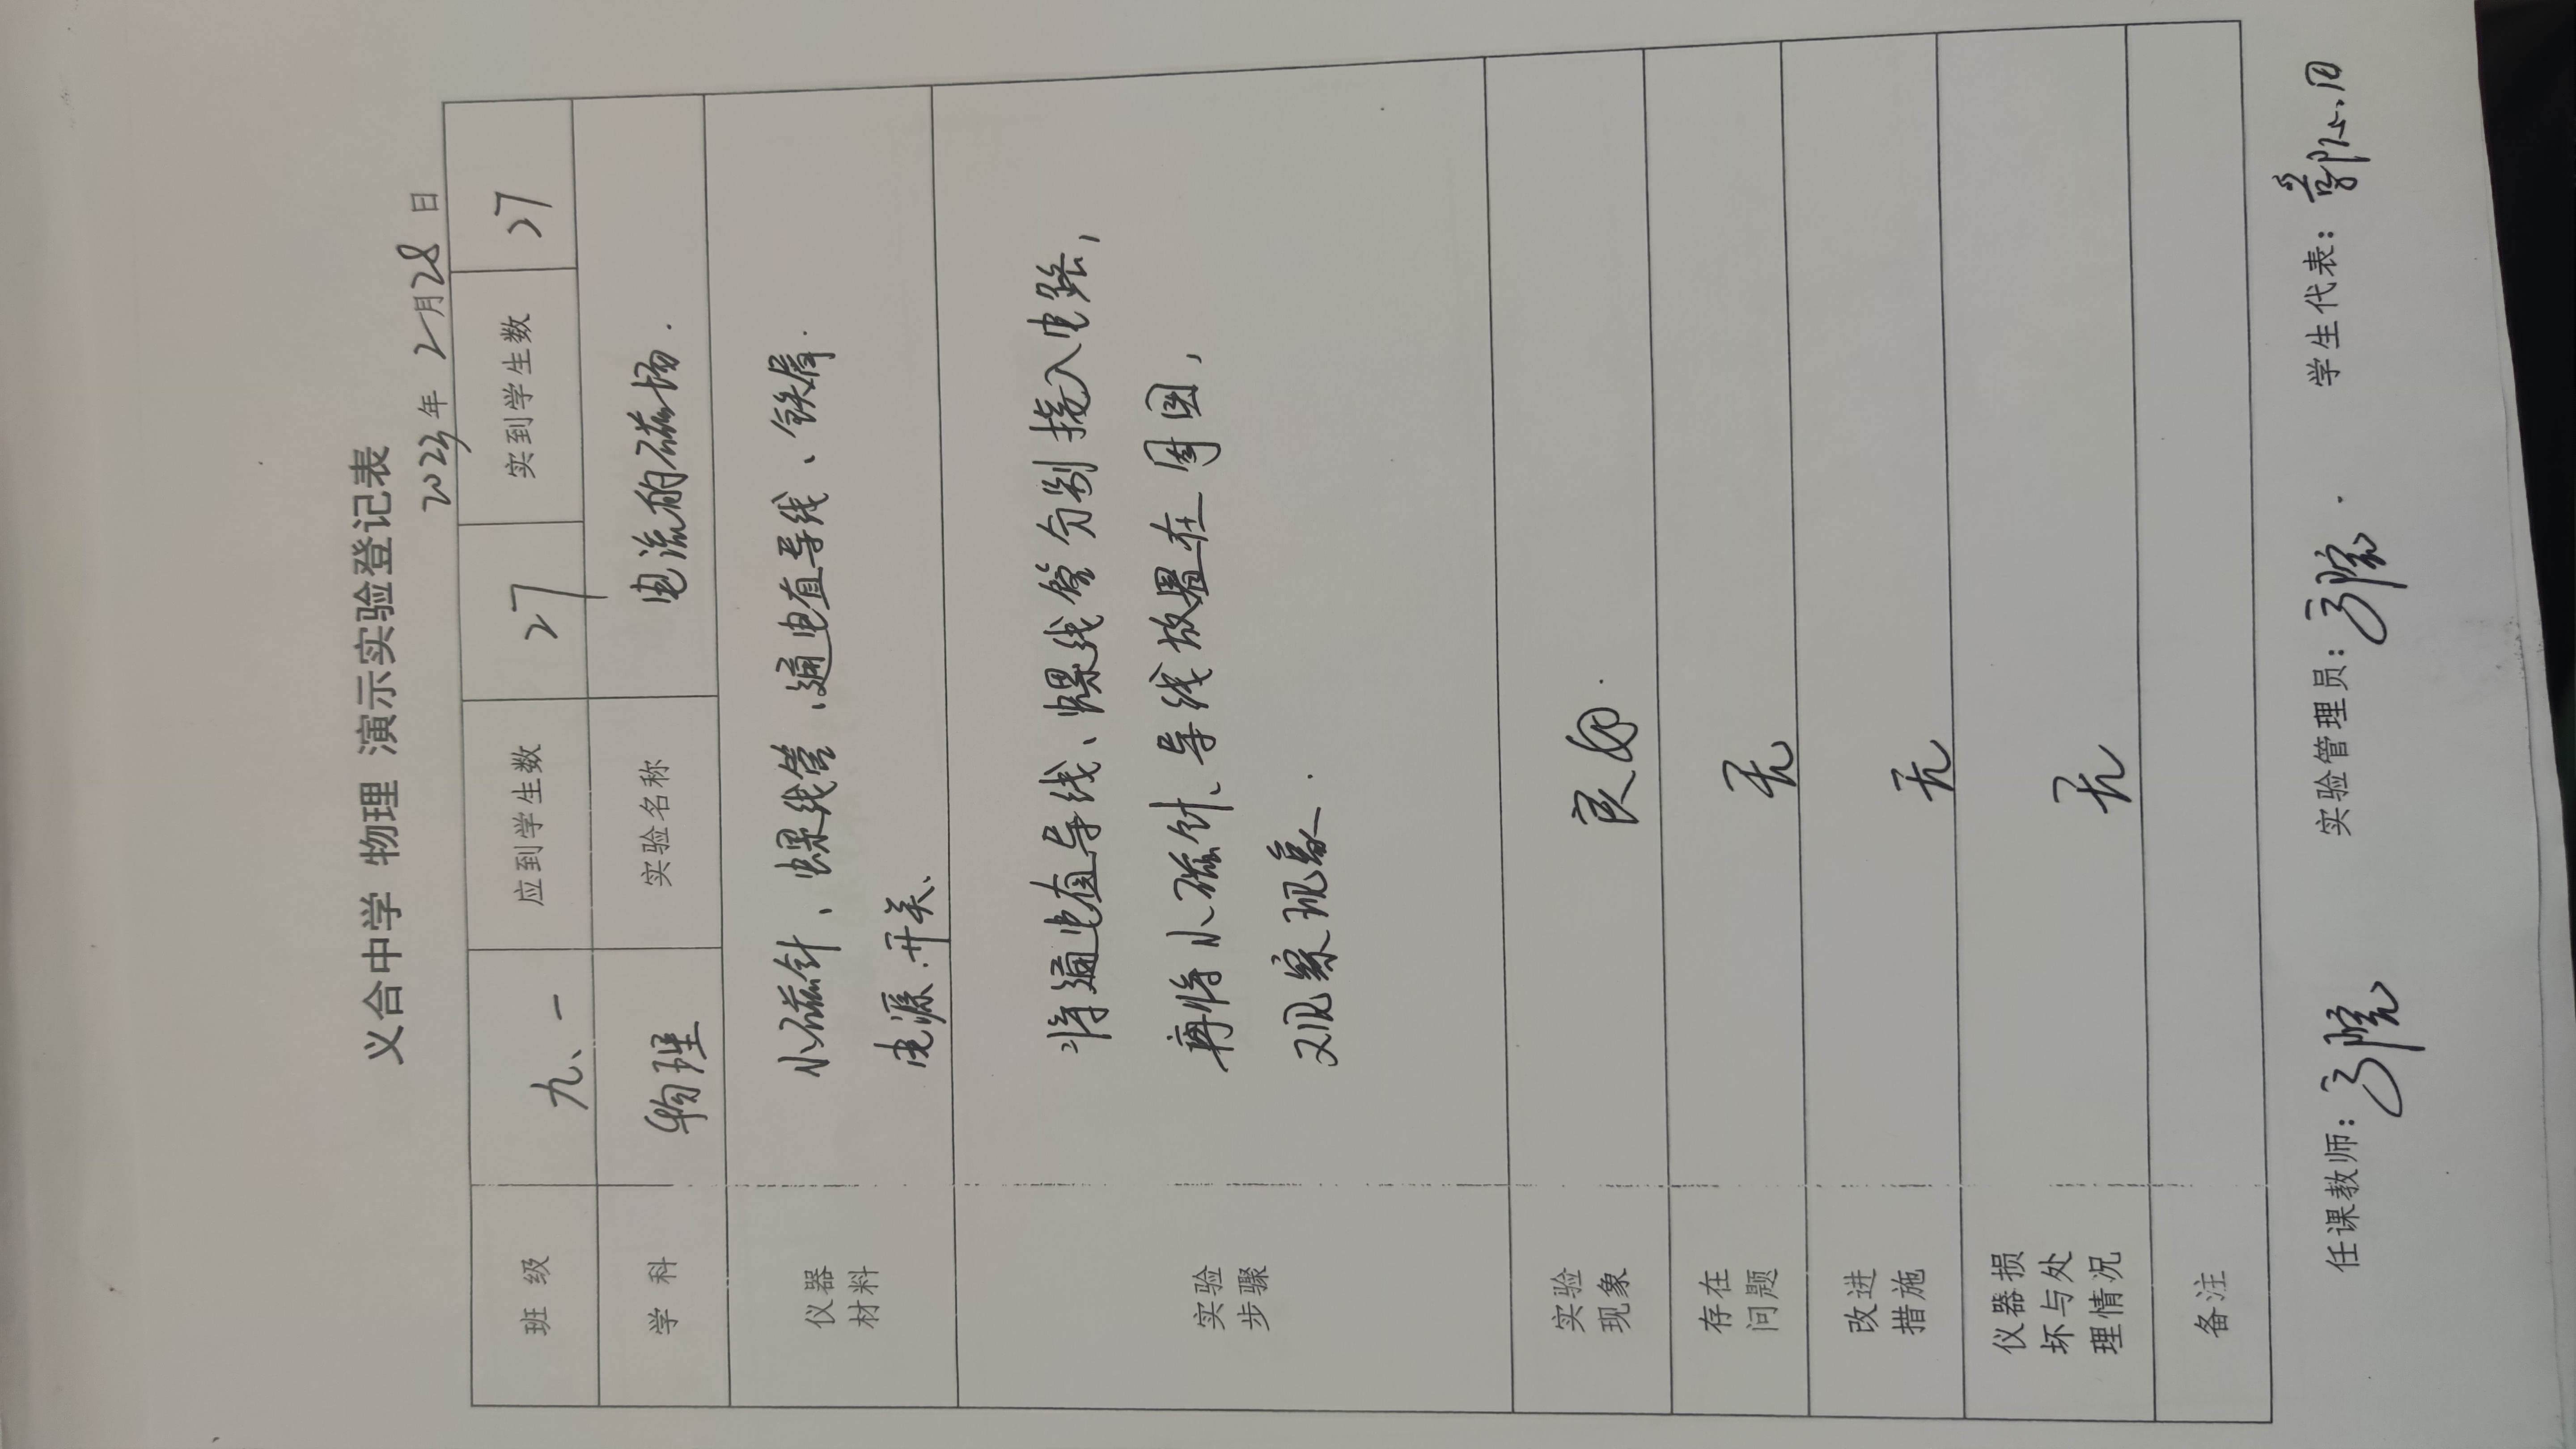 义合中学 物理 演示实验登记表
2023年 2月28日
班 级 九、一 应到学生数 27 实到学生数 27
学 科 物理 实验名称 电流的磁场.
仪器
材料
小磁针、螺线管、通电直导线、铁屑.
电源、开关、
实验
步骤
将通电直导线、螺线管分别接入电路,
再将小磁针、导线放置在周围,
观察现象.
实验
现象
良好.
存在
问题
无
改进
措施
无
仪器损
坏与处
理情况
无
备注
任课教师: 实验管理员: 学生代表: